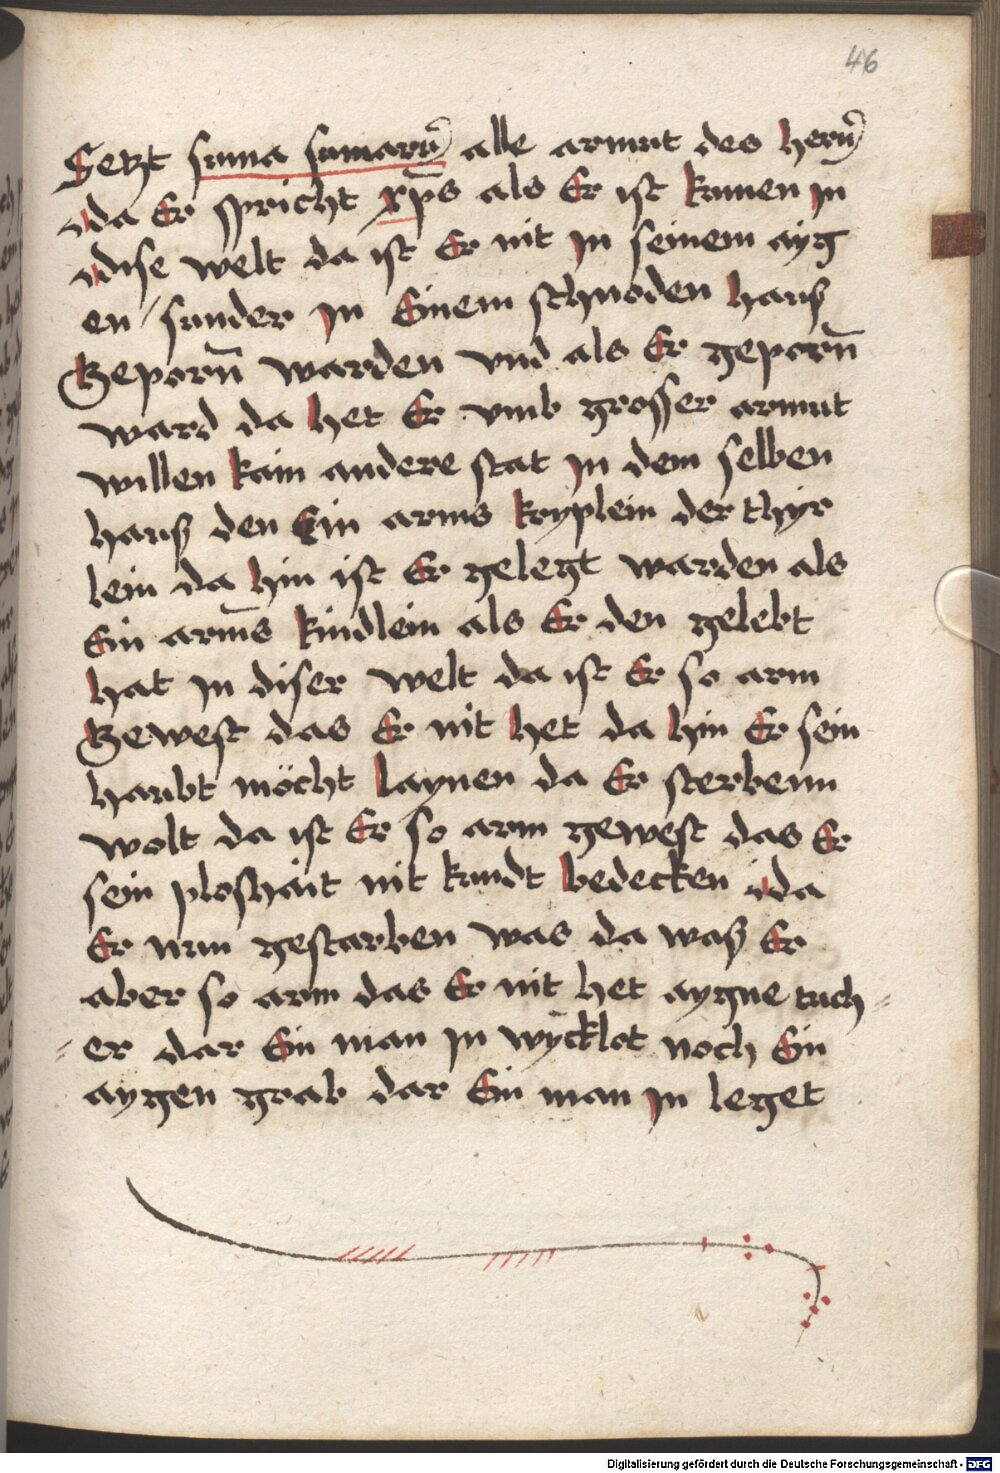 46
Setzt suma sumarum alle armut des hern
da Er spricht xp̄s als Er ist kumen jn
dise welt da ist Er nit jn seinem ayg
en / sunder jn Einem schnoden hauß
Geporn̄ warden vnd als Er geporn̄
ward da het Er vmb grosser armut
willen kain andere stat jn dem selben
hauß den Ein arms kryplein der thyr
lein da hin ist Er gelegt warden als
Ein arm̄s kindlein als Er den gelebt
hat jn diser welt da ist Er so arm
Gewest das Er nit het da hin Er sein
haubt möcht laynen da Er sterbenn
wolt da ist Er so arm gewest das Er
sein ploshait nit kundt bedecken da
Er nun gestarben was da waß Er
aber so arm das Er nit het aygne tuch=
=er dar Ein man jn wycklet noch Ein
aygen grab dar Ein man jn leget
Digitalisierung gefördert durch die Deutsche Forschungsgemeinschaft - DFG